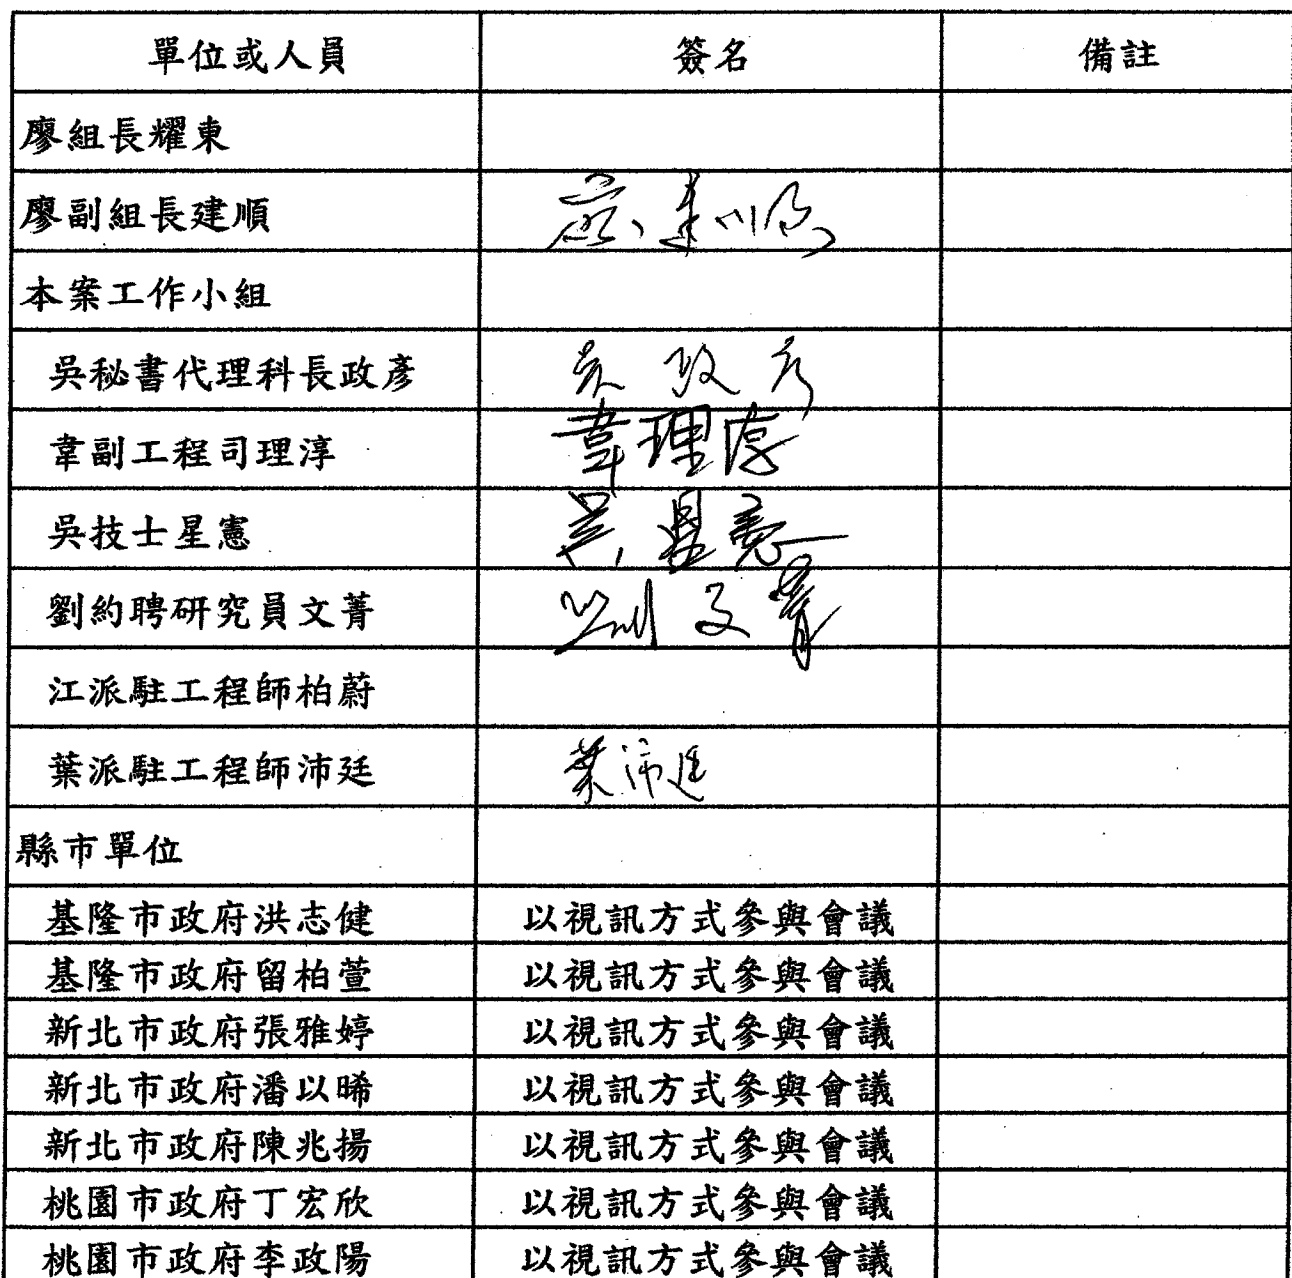 單位或人員 簽名 備註
廖組長耀東
廖副組長建順 廖建順
本案工作小組
吳秘書代理科長政彥 吳政彥
韋副工程司理淳 韋理淳
吳技士星憲 吳星憲
劉約聘研究員文菁 劉文菁
江派駐工程師柏蔚
葉派駐工程師沛廷 葉沛廷
縣市單位
基隆市政府洪志健 以視訊方式參與會議
基隆市政府留柏萱 以視訊方式參與會議
新北市政府張雅婷 以視訊方式參與會議
新北市政府潘以晞 以視訊方式參與會議
新北市政府陳兆揚 以視訊方式參與會議
桃園市政府丁宏欣 以視訊方式參與會議
桃園市政府李政陽 以視訊方式參與會議